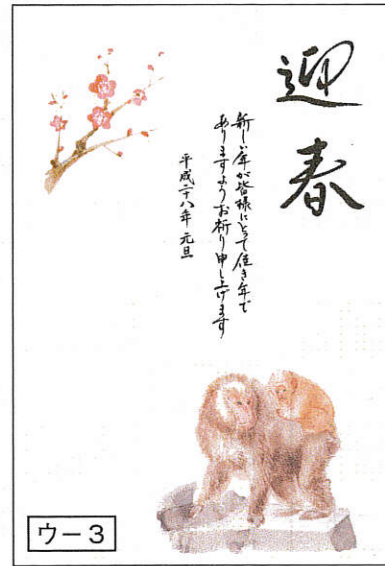 迎春
新しい年が皆様にとって佳き年で
ありますようお祈り申し上げます
平成二十八年 元旦
ウー3